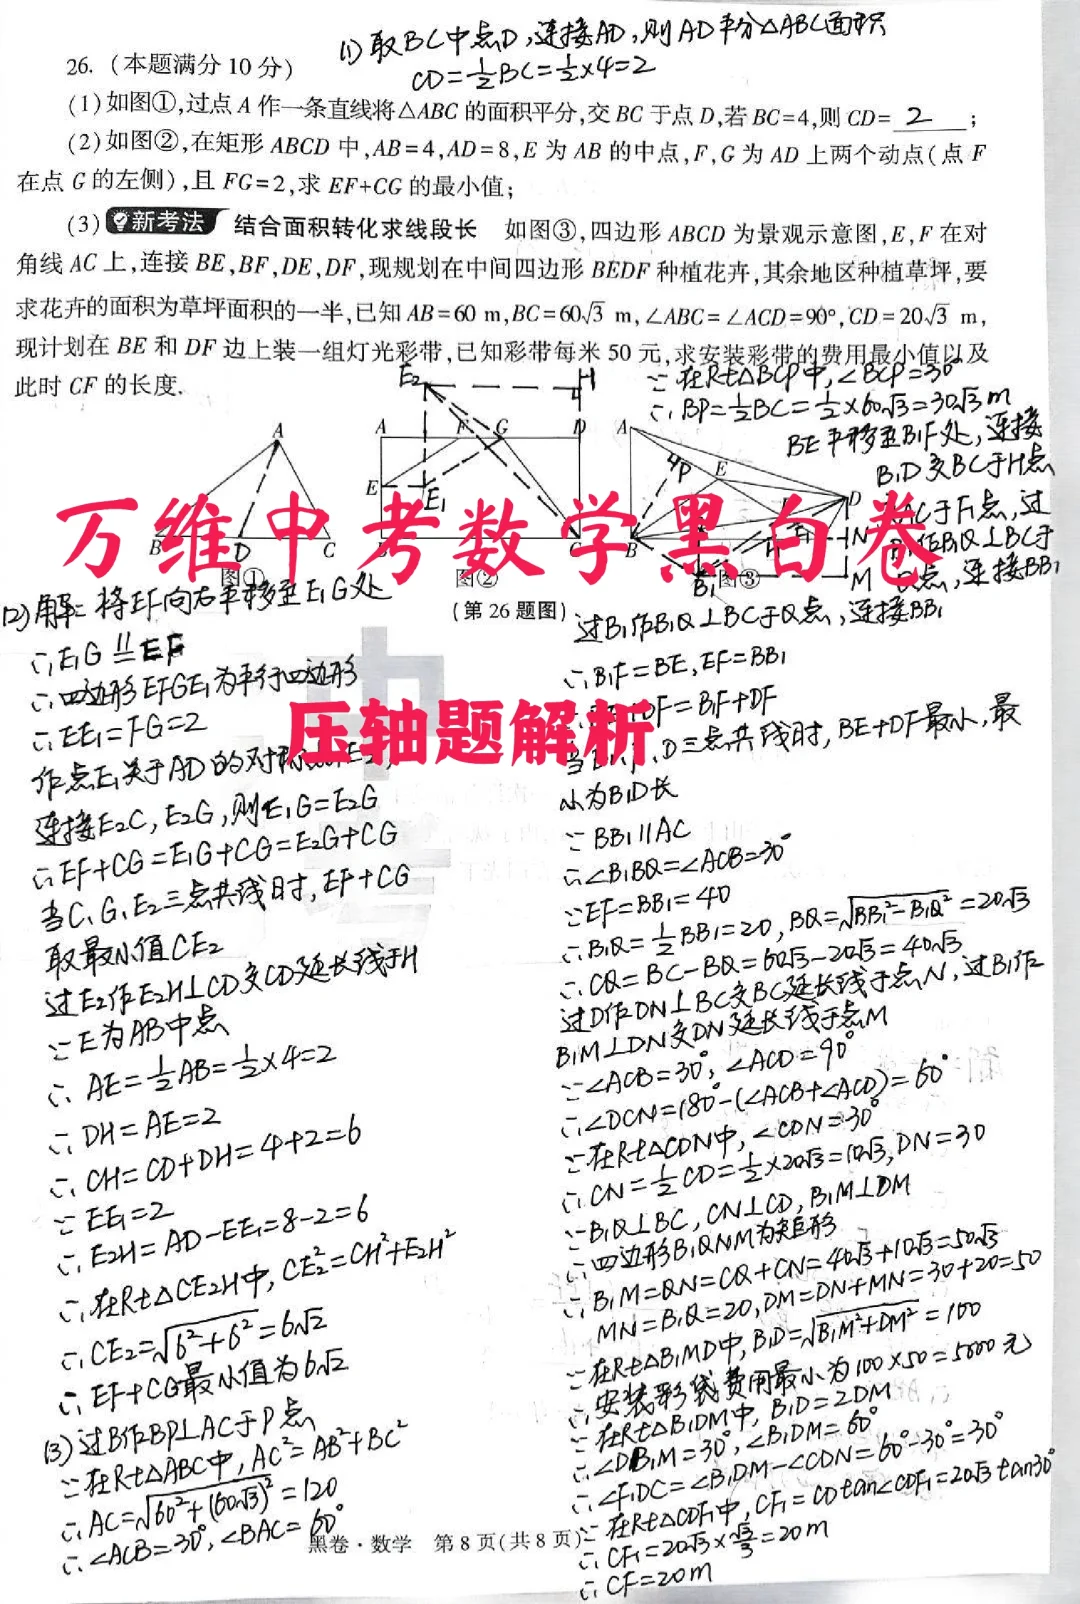 (1) 取BC中点D,连接AD,则AD平分△ABC面积
CD=½BC=½×4=2
26. (本题满分 10 分)
(1)如图①,过点 A 作一条直线将△ABC 的面积平分,交 BC 于点 D,若 BC=4,则 CD= 2 ;
(2)如图②,在矩形 ABCD 中,AB=4,AD=8,E 为 AB 的中点,F,G 为 AD 上两个动点(点 F
在点 G 的左侧),且 FG=2,求 EF+CG 的最小值;
(3) 新考法 结合面积转化求线段长 如图③,四边形 ABCD 为景观示意图,E,F 在对
角线 AC 上,连接 BE,BF,DE,DF,现规划在中间四边形 BEDF 种植花卉,其余地区种植草坪,要
求花卉的面积为草坪面积的一半,已知 AB=60 m,BC=60√3 m,∠ABC=∠ACD=90°,CD=20√3 m,
现计划在 BE 和 DF 边上装一组灯光彩带,已知彩带每米 50 元,求安装彩带的费用最小值以及
此时 CF 的长度.
∵在Rt△BCP中,∠BCP=30°
∴BP=½BC=½×60√3=30√3m
BE平移至B₁F处,连接
B₁D交BC于H点
AC于F₁点,过
作B₁Q⊥BC于
Q点,连接BB₁
A
B
D
C
图①
E₂
H
A
F
G
D
E
E₁
C
图②
A
P
E
D
B
N
B₁
M
图③
(第 26 题图)
万维中考数学黑白卷
压轴题解析
(2)解:将EF向右平移至E₁G处
∴E₁G∥=EF
∴四边形EFGE₁为平行四边形
∴EE₁=FG=2
作点E₁关于AD的对称点E₂,
连接E₂C,E₂G,则E₁G=E₂G
∴EF+CG=E₁G+CG=E₂G+CG
当C、G、E₂三点共线时,EF+CG
取最小值CE₂
过E₂作E₂H⊥CD交CD延长线于H
∵E为AB中点
∴AE=½AB=½×4=2
∴DH=AE=2
∴CH=CD+DH=4+2=6
∵EE₁=2
∴E₂H=AD-EE₁=8-2=6
∴在Rt△CE₂H中,CE₂²=CH²+E₂H²
∴CE₂=√(6²+6²)=6√2
∴EF+CG最小值为6√2
(3)过B作BP⊥AC于P点
∵在Rt△ABC中,AC²=AB²+BC²
∴AC=√(60²+(60√3)²)=120
∴∠ACB=30°,∠BAC=60°
过B₁作B₁Q⊥BC于Q点,连接BB₁
∴B₁F=BE,EF=BB₁
DF=B₁F+DF
当B₁、F、D三点共线时,BE+DF最小,最
小为B₁D长
∵BB₁∥AC
∴∠B₁BQ=∠ACB=30°
∵EF=BB₁=40
∴B₁Q=½BB₁=20,BQ=√(BB₁²-B₁Q²)=20√3
∴CQ=BC-BQ=60√3-20√3=40√3
过D作DN⊥BC交BC延长线于点N,过B₁作
B₁M⊥DN交DN延长线于点M
∵∠ACB=30°,∠ACD=90°
∴∠DCN=180°-(∠ACB+∠ACD)=60°
∵在Rt△CDN中,∠CDN=30°
∴CN=½CD=½×20√3=10√3,DN=30
∵B₁Q⊥BC,CN⊥CD,B₁M⊥DM
∴四边形B₁QNM为矩形
∴B₁M=QN=CQ+CN=40√3+10√3=50√3
MN=B₁Q=20,DM=DN+MN=30+20=50
∵在Rt△B₁MD中,B₁D=√(B₁M²+DM²)=100
∴安装彩袋费用最小为100×50=5000元
∵在Rt△B₁DM中,B₁D=2DM
∴∠DB₁M=30°,∠B₁DM=60°
∴∠F₁DC=∠B₁DM-∠CDN=60°-30°=30°
∵在Rt△CDF₁中,CF₁=CDtan∠CDF₁=20√3tan30°
∴CF₁=20√3×√3/3=20m
∴CF=20m
黑卷·数学 第 8 页(共 8 页)